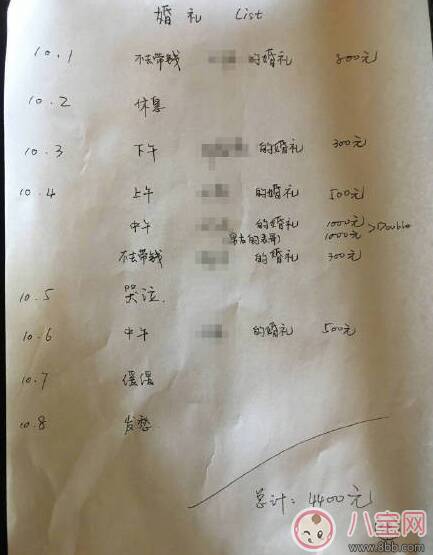 婚礼 List
10.1 不去带钱 的婚礼 800元
10.2 休息
10.3 下午 的婚礼 300元
10.4 上午 的婚礼 500元
中午 的婚礼 1000元
的表哥 1000元 >Double
不去带钱 的婚礼 300元
10.5 哭泣.
10.6 中午 的婚礼 500元
10.7 缓缓
10.8 发愁
总计: 4400元
八宝网
www.8bb.com